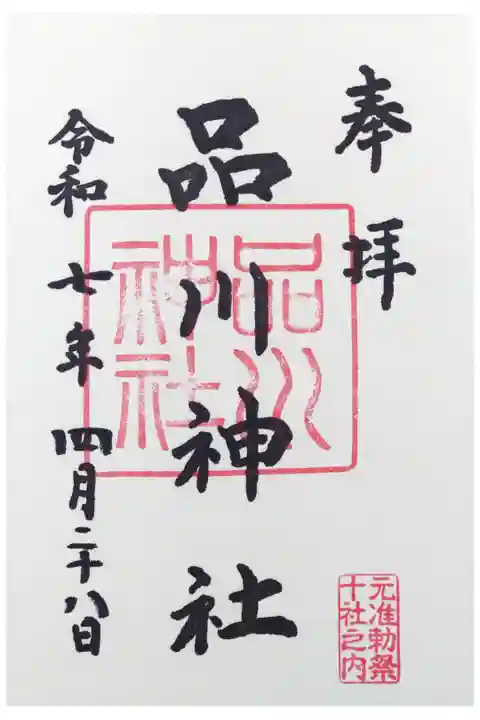 奉拝
品川神社
品川
神社
令和七年四月二十八日
元准勅祭
十社之内